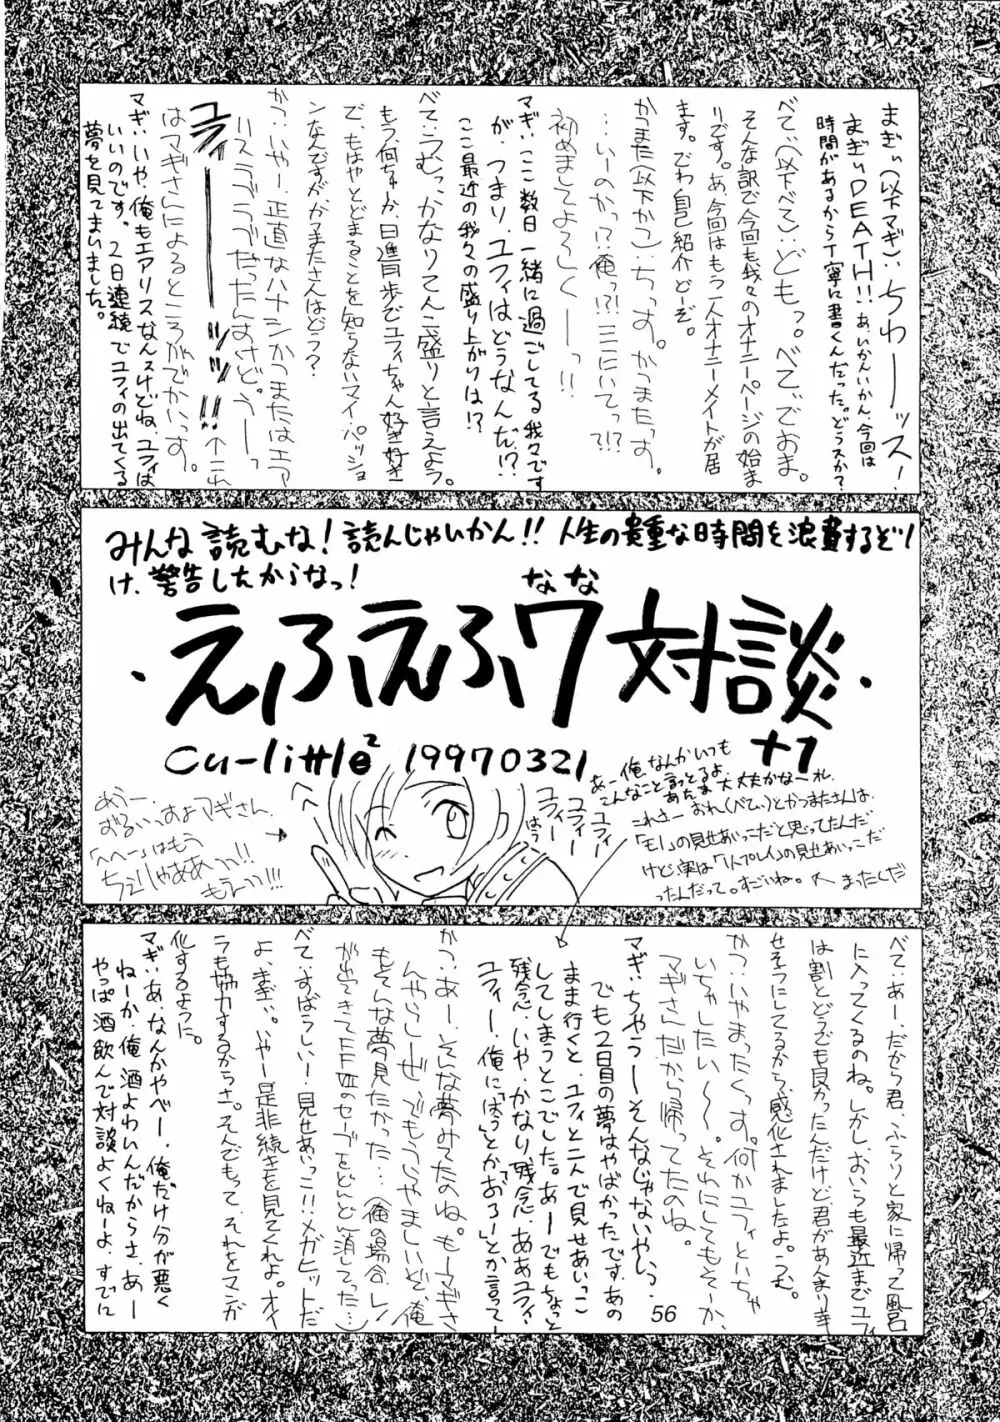 まぎぃ(以下マギ)：ちわーーッス！
まぎぃDEATH!!あ、いかんいかん、今回は
時間があるから丁寧に書くんだった。どうスか？
べて、(以下べて)：どもっ。べてぃでおま。
そんな訳で今回も我々のオナニーページの始ま
りです。あ、今回はもう一人オナニーメイトが居
ます。でわ自己紹介どーぞ。
かつまた(以下かつ)：ちっす。かつまたっす。
…いーのかっ!?俺っ!?ここにいてっ?!?
初めましてよろしくーーっ!!
マギ：ここ数日一緒に過ごしてる我々です
が、つまり、ユフィはどうなんだ!?
ここ最近の我々の盛り上がりは!?
べて：うむっ、かなりてんこ盛りと言えよう。
もう、何ちゅーか、日進月歩でユフィちゃん好き好き
で、もはやとどまることを知らないマイ・パッショ
ンなんですが、かつまたさんはどう？
かつ：いやー、正直なハナシかつまたはエア
リスラブラブだったんすけど。うーーっ
はマギさんによるところがでかいっす。
ユフィーーーーッッ!!↑これ
マギ：いや、俺もエアリスなんスけどね、ユフィは
いいのです。2日連続でユフィの出てくる
夢を見てまいました。
みんな読むな！読んじゃいかん!!人生の貴重な時間を浪費するどり
け、警告したからなっ！
・えふえふ7対談・
なな
+1
Cu-little2 19970321
あうー、
おるいっすよマギさん、
「へへー」はもう
ちぇりゃああっっ!!
もえっっ!!!
ユフィー
ユフィー
ユフィー
はう
あー俺なんかいつも
こんなこと言っとるよ
あたま大丈夫かな〜れ
これさーおれ(べてぃ)とかつまたさんは、
「モノ」の見せあいっこだと思ってたんだ
けど実は「1人プレイ」の見せあいっこだ
ったんだって。すごいね。
べて：あー、だから君、ふらりと家に帰って風呂
に入ってくるのね。しかし、おいらも最近までユフィ
は割とどうでも良かったんだけど君があんまり幸
せそうにしてるから、感化されましたよ。うむ。
かつ：いやまったくっす。何かユフィといちゃ
いちゃしたい〜〜。それにしてもそーか、
マギさんだから帰ってたのね。
マギ：ちゃうーーそんなじゃないやいっ
でも2日目の夢はやばかったです。あの
まま行くと、ユフィと二人で見せあいっこ
してしまうとこでした。あーーでもちょっと
残念、いや、かなり残念、ああユフィ、
ユフィー、俺に「はうっ」とか「おろー」とか言ってー
かつ：あー、そんな夢みてたのね。もーマギさ
んやらしーぜ でもうらやましいぞ、俺
もそんな夢見たかった…(俺の場合、レノ
が出てきてFFVIIのセーブをどんどん消してった…)
べて：すばらしいー！見せあいっこ!!メガヒットだ
よ、まぎぃ。いやー是非続きを見てくれよ。オイ
ラも協力するからさ。そんでもって、それをマンガ
化するように。
マギ：あ、なんかやべー、俺だけ分が悪く
ねーか、俺、酒よわいんだからさ、あー
やっぱ酒飲んで対談よくねーよ、すでに
56